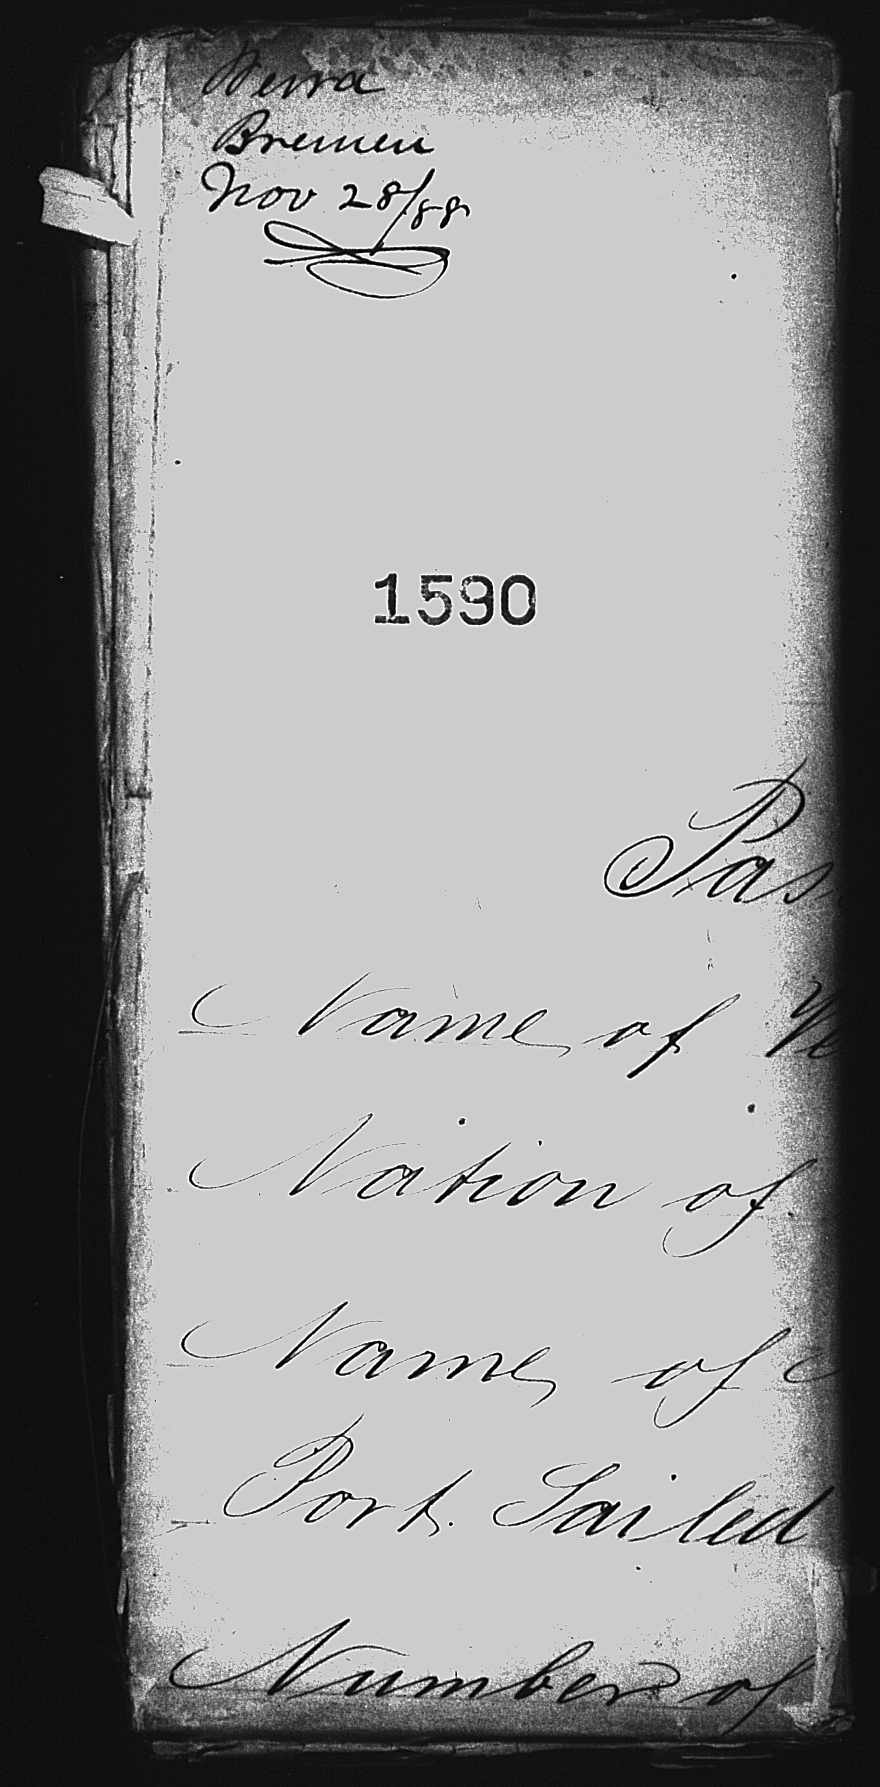 Werra
Bremen
Nov 28/88
1590
Pas
Name of Ve
Nation of
Name of
Port Sailed
Number of